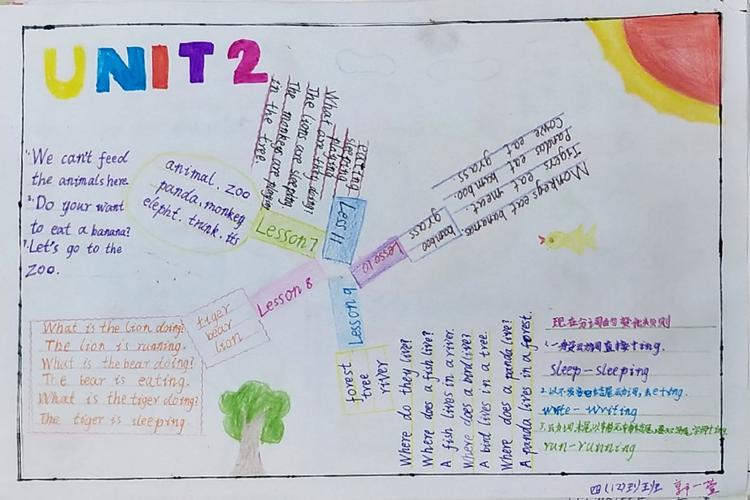 UNIT2
We can't feed
the animals here.
Do your want
to eat a banana?
Let's go to the
zoo.
animal. zoo
panda. monkey
elepht. trunk. its
Lesson 7
eating
sleeping
playing
What are they doing?
The lions are sleeping
The monkeys are playing
in the tree.
Less 11
Lesso 10
bamboo
grass
Monkeys eat bananas.
Tigers eat meat.
Pandas eat bamboo.
Cows eat grass
Lesson 8
tiger
bear
lion
What is the lion doing?
The lion is running.
What is the bear doing?
The bear is eating.
What is the tiger doing?
The tiger is sleeping.
Lesson 9
forest
tree
river
Where do they live?
Where does a fish live?
A fish lives in a river.
Where does a bird live?
A bird lives in a tree.
Where does a panda live?
A panda lives in a forest.
现在分词的变化规则
1.一般在动词直接+ing.
sleep-sleeping
2.以不发音e结尾去e+ing.
write-writing
run-running
四(12)班